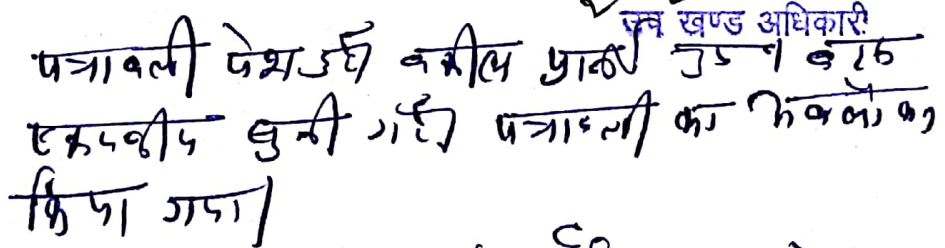 उप खण्ड अधिकारी
पत्रावली पेश हुई वकील प्रार्थी उप० बहस
एकपक्षीय सुनी गई। पत्रावली का अवलोकन
किया गया।